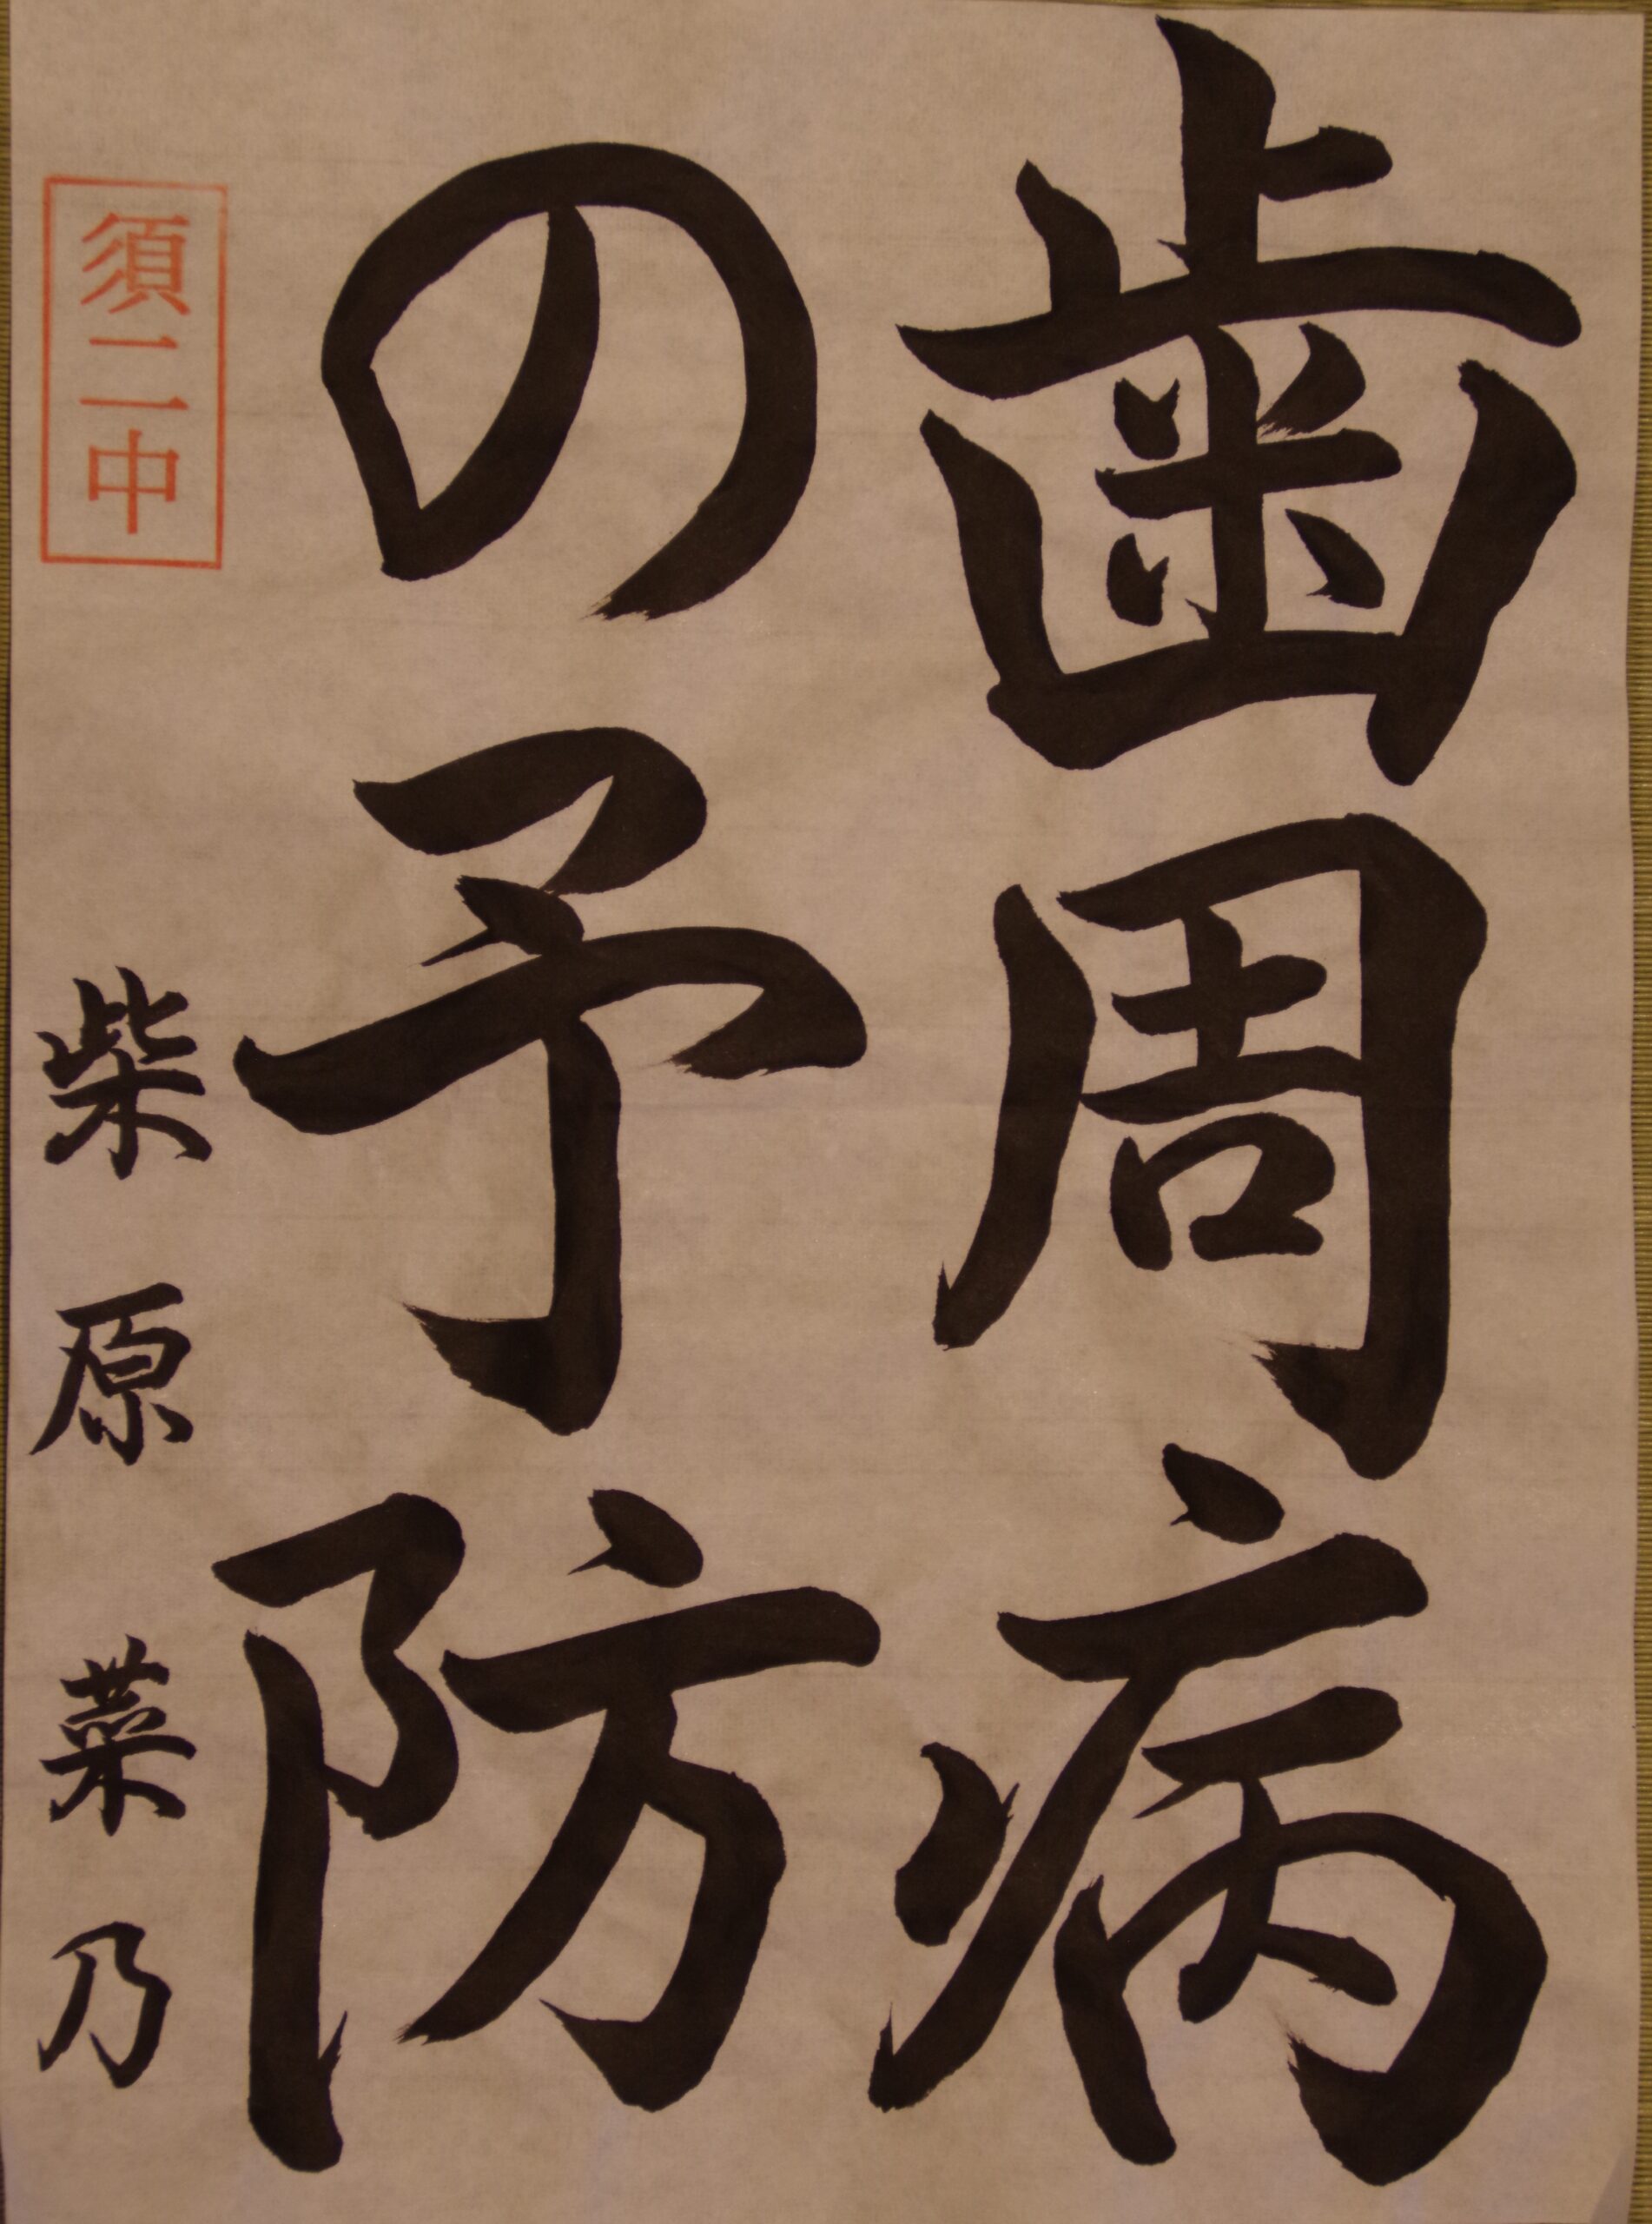 歯周病
の予防
須二中
柴原菜乃